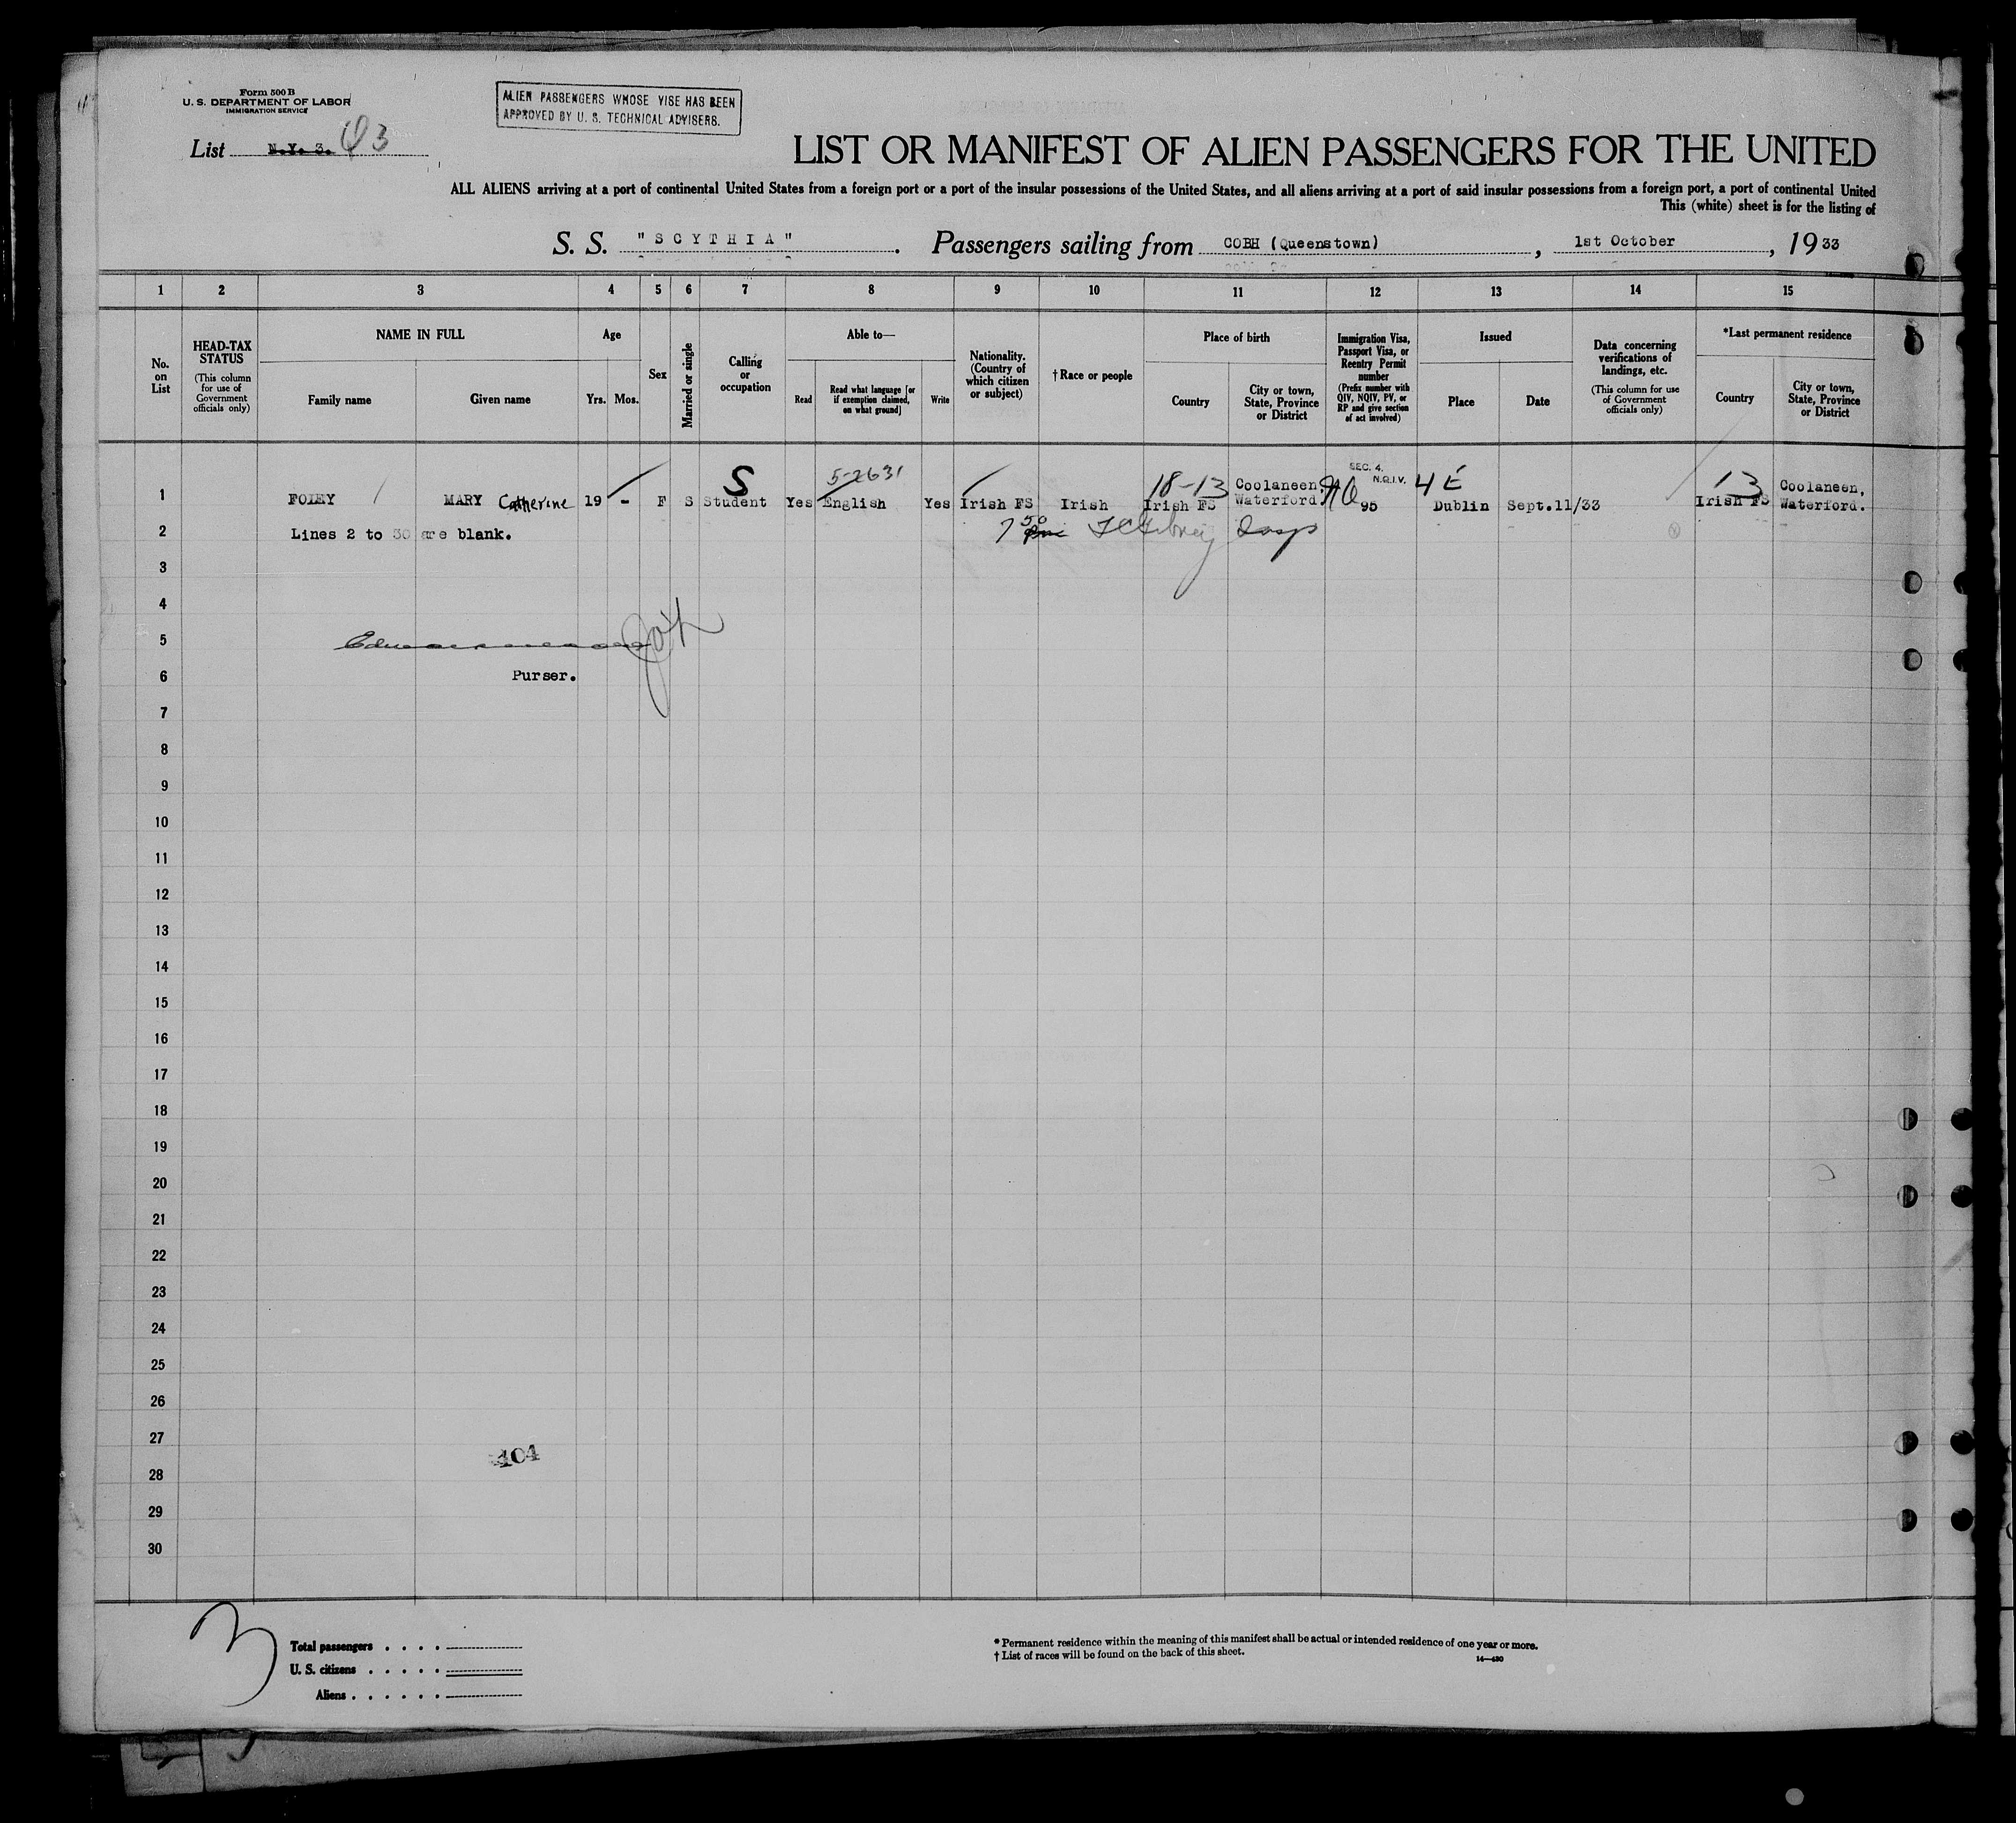 Form 500 B
U. S. DEPARTMENT OF LABOR
IMMIGRATION SERVICE
ALIEN PASSENGERS WHOSE VISE HAS BEEN
APPROVED BY U. S. TECHNICAL ADVISERS.
List N.Y. 3. 43
LIST OR MANIFEST OF ALIEN PASSENGERS FOR THE UNITED
ALL ALIENS arriving at a port of continental United States from a foreign port or a port of the insular possessions of the United States, and all aliens arriving at a port of said insular possessions from a foreign port, a port of continental United
This (white) sheet is for the listing of
S. S. "SCYTHIA". Passengers sailing from COBH (Queenstown), 1st October, 1933
1 2 3 4 5 6 7 8 9 10 11 12 13 14 15
No. on List
HEAD-TAX STATUS
(This column for use of Government officials only)
NAME IN FULL
Family name
Given name
Age
Yrs. Mos.
Sex
Married or single
Calling or occupation
Able to—
Read
Read what language [or if exemption claimed, on what ground]
Write
Nationality. (Country of which citizen or subject)
†Race or people
Place of birth
Country
City or town, State, Province or District
Immigration Visa, Passport Visa, or Reentry Permit number
(Prefix number with QIV, NQIV, PV, or RP and give section of act involved)
Issued
Place
Date
Data concerning verifications of landings, etc.
(This column for use of Government officials only)
*Last permanent residence
Country
City or town, State, Province or District
S 5-2631 18-13 SEC. 4. N.Q.I.V. 4 E 13
1 FOLEY MARY Catherine 19 - F S Student Yes English Yes Irish FS Irish Irish FS Coolaneen Waterford. 95 Dublin Sept.11/33 Irish FS Coolaneen, Waterford.
2 Lines 2 to 30 are blank.
3
4
5
6 Purser.
7
8
9
10
11
12
13
14
15
16
17
18
19
20
21
22
23
24
25
26
27
404
28
29
30
3
Total passengers . . . .
U. S. citizens . . . . .
Aliens . . . . . .
* Permanent residence within the meaning of this manifest shall be actual or intended residence of one year or more.
† List of races will be found on the back of this sheet.
14—430